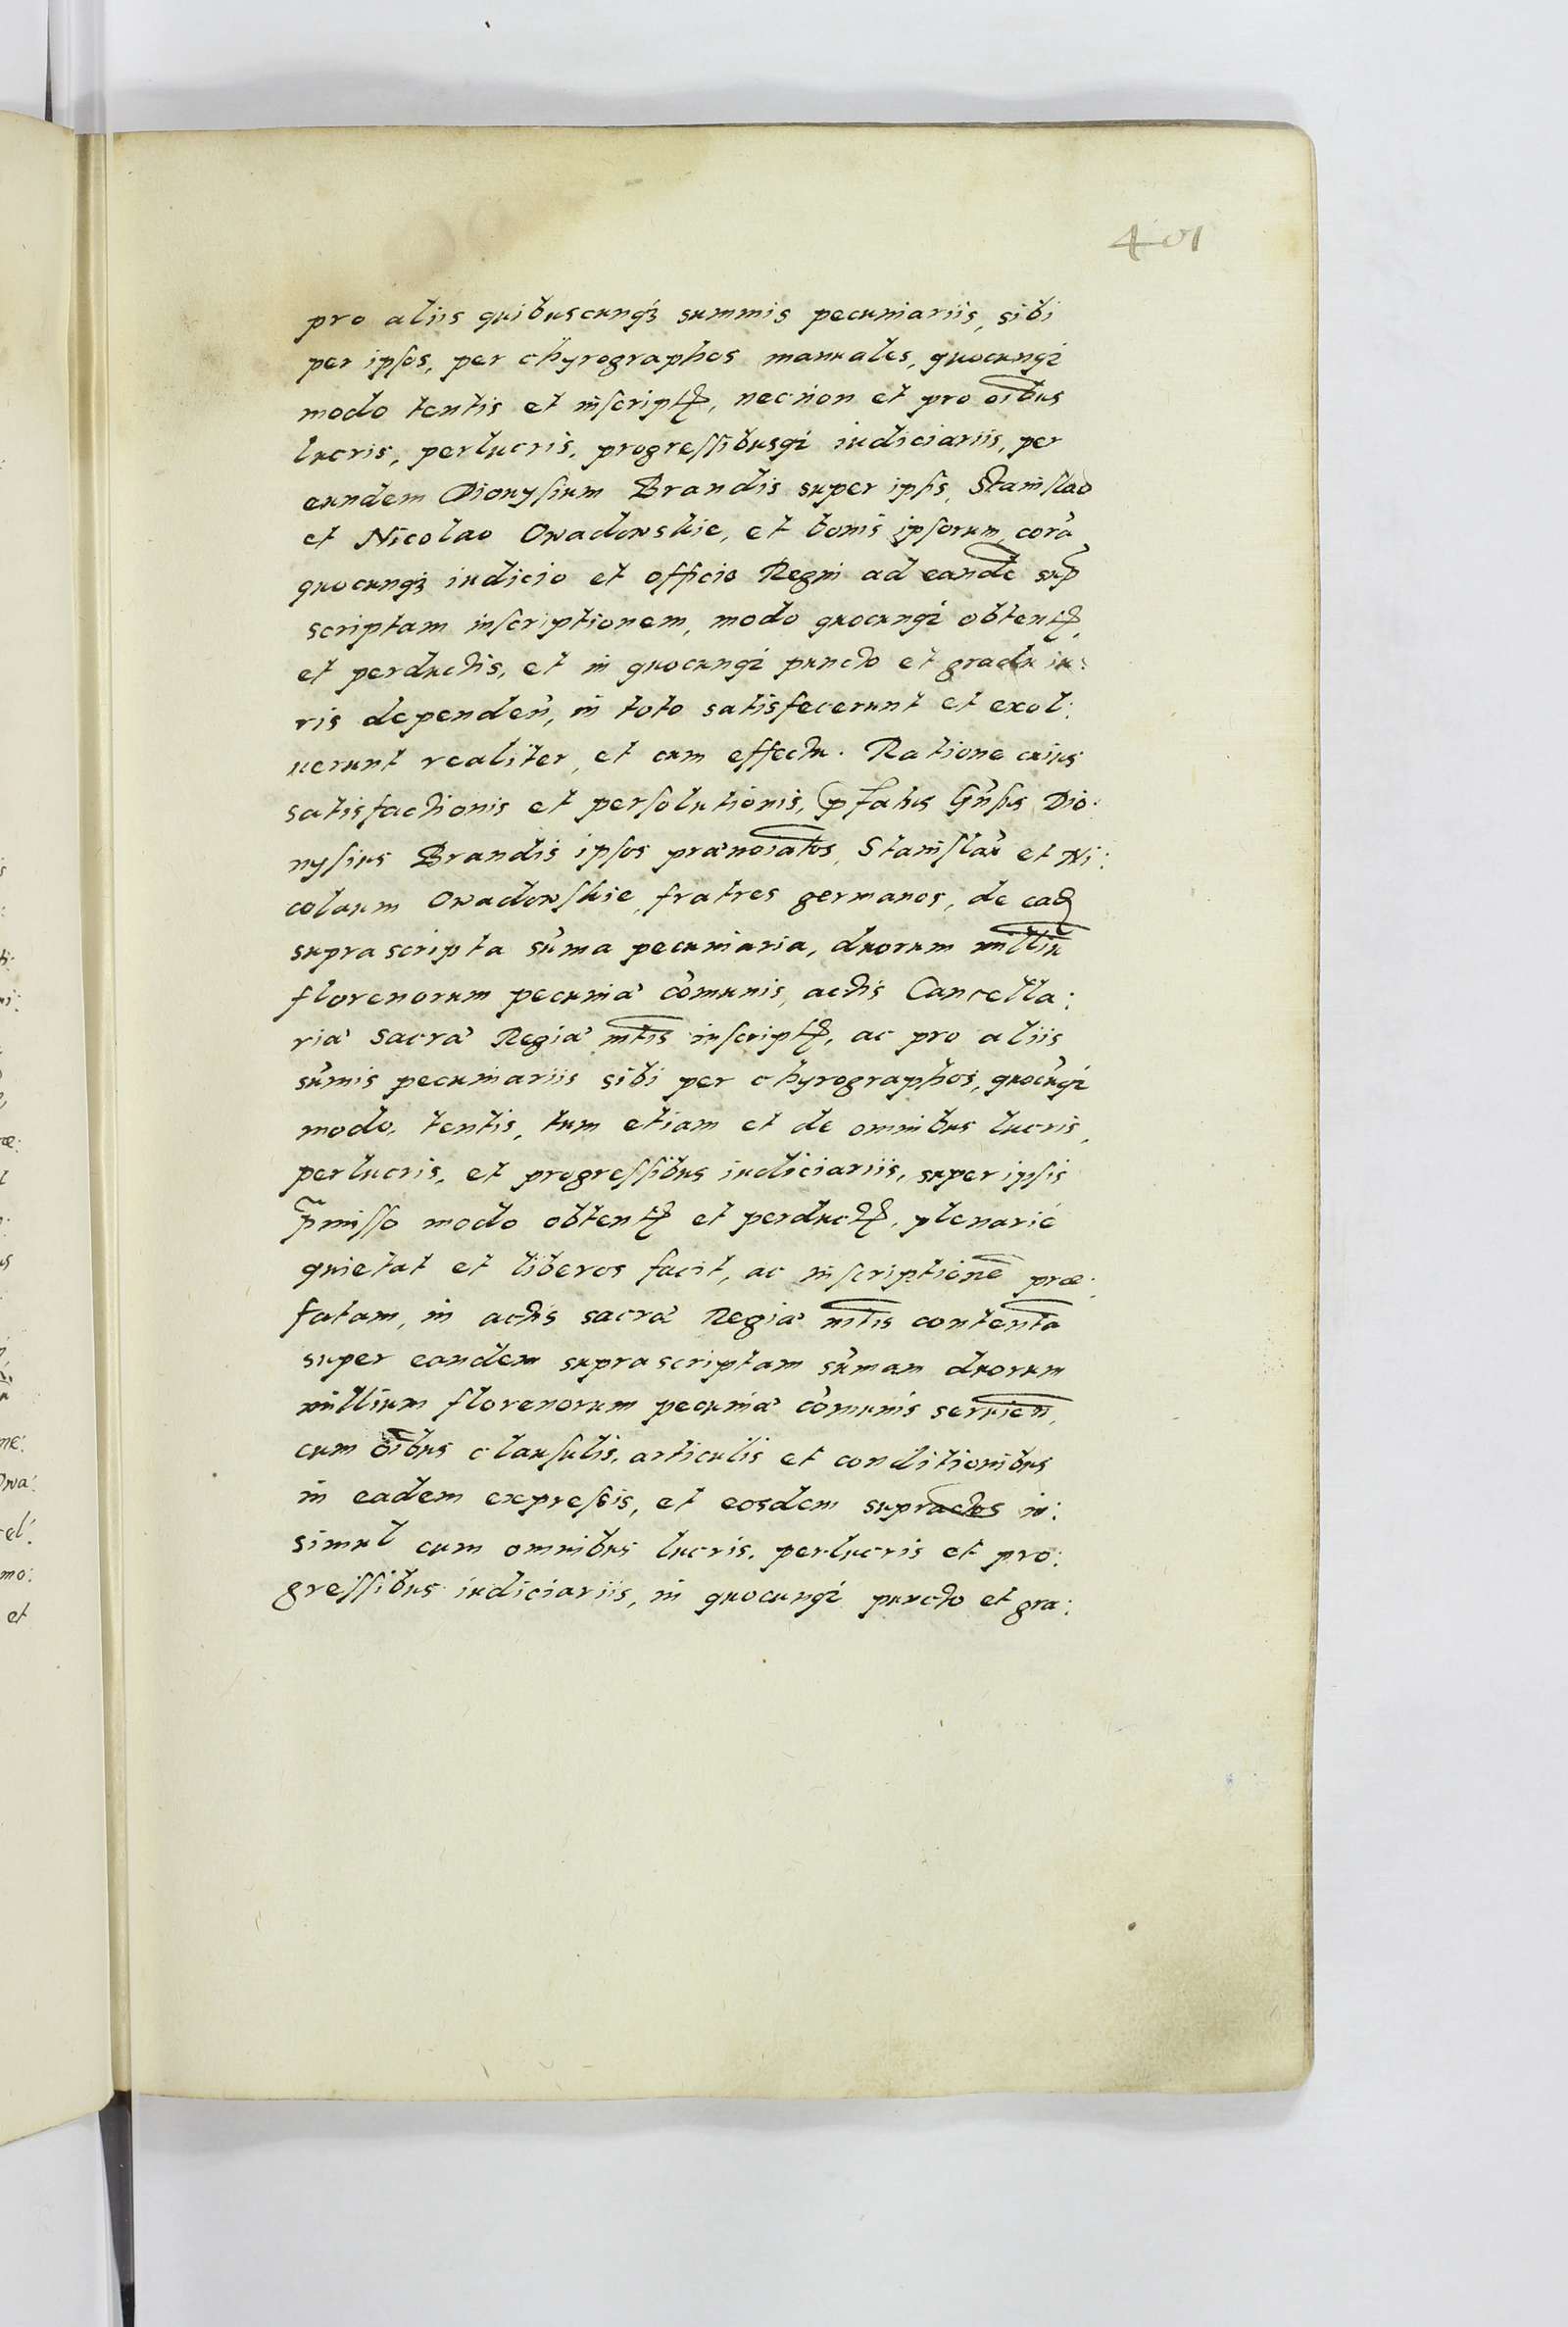 401
pro aliis quibuscunqꝫ summis pecuniariis, sibi
per ipsos, per chyrographos manuales, quocunqꝫ
modo tentis et inscriptꝭ, necnon et pro oĩbus
lucris, perlucris, progressibusqꝫ iudiciariis, per
eundem Dionysium Brandis super ipsis, Stanislao
et Nicolao Owadowskie, et bonis ipsorum, corã
quocunqꝫ iudicio et officio Regni ad eandẽ sup̃
scriptam inscriptionem, modo quocunqꝫ obtentꝭ,
et perductis, et in quocunqꝫ puncto et gradu iu:
ris dependeñ, in toto satisfecerunt et exol:
uerunt realiter, et cum effectu. Ratione cuius
satisfactionis et persolutionis, p̃fatus Gñsus Dio:
nysius Brandis ipsos prænoĩatos, Stanislaũ et Ni:
colaum Owadowskie, fratres germanos, de eadꝭ
suprascripta sũma pecuniaria, duorum milliũ
florenorum pecuniæ cõmunis, actis Cancella:
riæ Sacræ Regiæ mtĩs inscriptꝭ, ac pro aliis
sũmis pecuniariis sibi per chyrographos, quocũqꝫ
modo, tentis, tum etiam et de omnibus lucris,
perlucris, et progressibus iudiciariis, super ipsis
p̃misso modo obtentꝭ et perductꝭ, plenariè
quietat et liberos facit, ac inscriptionẽ præ:
fatam, in actis sacræ Regiæ mtĩs contentã
super eandem suprascriptam sũmam duorum
millium florenorum pecuniæ cõmunis seruieñ,
cum oĩbus clausulis, articulis et conditionibus
in eadem expressis, et eosdem supradc̃os in:
simul cum omnibus lucris, perlucris et pro:
gressibus iudiciariis, in quocunqꝫ puncto et gra: